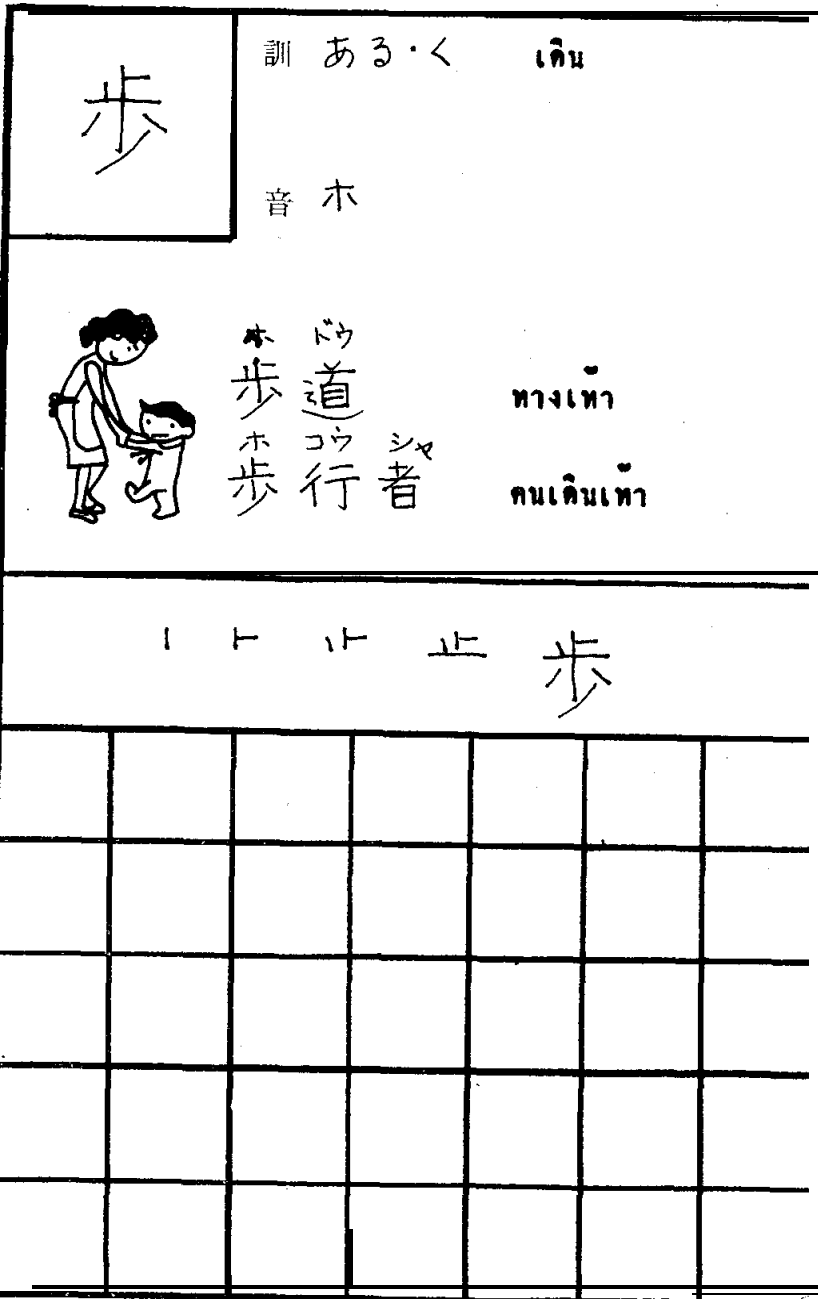 歩
訓 ある・く เดิน
音 ホ
ホ ドウ
歩道 ทางเท้า
ホ コウ シャ
歩行者 คนเดินเท้า
歩